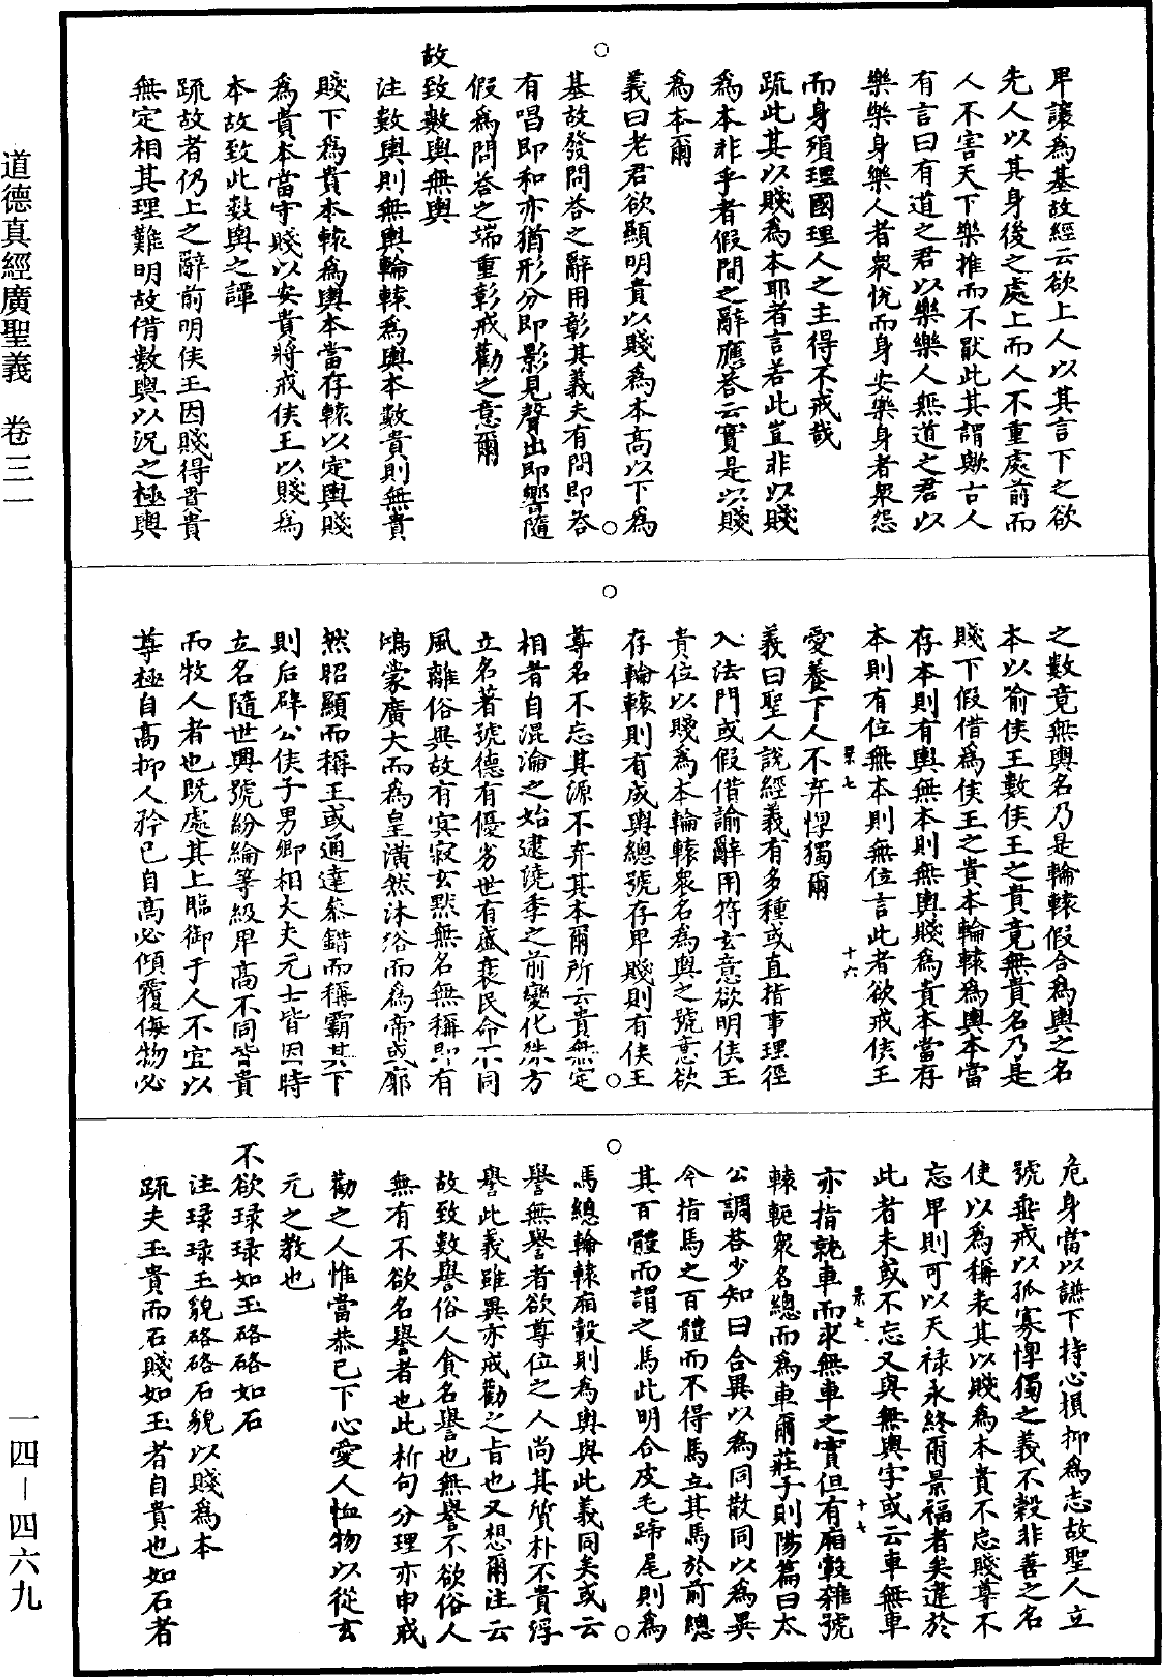 卑讓爲基故經云欲上人以其言下之欲
先人以其身後之處上而人不重處前而
人不害天下樂推而不厭此其謂歟古人
有言曰有道之君以樂樂人無道之君以
樂樂身樂人者衆悅而身安樂身者衆怨
而身殞理國理人之主得不戒哉
疏此其以賤爲本耶者言若此豈非以賤
爲本非乎者假問之辭應荅云實是以賤
爲本爾
義曰老君欲顯明貴以賤爲本高以下爲
基故發問荅之辭用彰其義夫有問即荅
有唱即和亦猶形分即影見聲出即響隨
假爲問荅之端重彰戒勸之意爾
故致數輿無輿
注數輿則無輿輪轅爲輿本數貴則無貴
賤下爲貴本轅爲輿本當存轅以定輿賤
爲貴本當守賤以安貴將戒侯王以賤爲
本故致此數輿之譚
疏故者仍上之辭前明侯王因賤得貴貴
無定相其理難明故借數輿以況之極輿
之數竟無輿名乃是輪轅假合爲輿之名
本以喻侯王數侯王之貴竟無貴名乃是
賤下假借爲侯王之貴本輪轅爲輿本當
存本則有輿無本則無輿賤爲貴本當存
本則有位無本則無位言此者欲戒侯王
景七 十六
愛養下人不弃惸獨爾
義曰聖人說經義有多種或直指事理徑
入法門或假借諭辭用符玄意欲明侯王
貴位以賤爲本輪轅衆名爲輿之號意欲
存輪轅則有成輿總號存卑賤則有侯王
尊名不忘其源不弃其本爾所云貴無定
相者自混淪之始逮澆季之前變化殊方
立名著號德有優劣世有盛衰民命不同
風離俗異故有寘寂玄默無名無稱即有
鴻蒙廣大而爲皇潢然沐浴而爲帝或廓
然昭顯而稱王或通達叅錯而稱霸其下
則后辟公侯子男卿相大夫元士皆因時
立名隨世興號紛綸等級卑高不同皆貴
而牧人者也既處其上臨御于人不宜以
尊極自高抑人矜己自高必傾覆侮物必
危身當以謙下持心損抑爲志故聖人立
號垂戒以孤寡惸獨之義不穀非善之名
使以爲稱表其以賤爲本貴不忘賤尊不
忘卑則可以天禄永終爾景福者矣違於
此者未或不忘又與無輿字或云車無車
景七 十七
亦指就車而求無車之實但有廂轂雜號
轅軛衆名總而爲車爾莊子則陽篇曰太
公調荅少知曰合異以爲同散同以爲異
今指馬之百體而不得馬立其馬於前總
其百體而謂之馬此明合皮毛蹄尾則爲
馬總輪轅廂轂則爲輿與此義同矣或云
譽無譽者欲尊位之人尚其質朴不貴浮
譽此義雖異亦戒勸之旨也又想爾注云
故致數譽俗人貪名譽也無譽不欲俗人
無有不欲名譽者也此析句分理亦申戒
勸之人惟當恭己下心愛人恤物以從玄
元之教也
不欲琭琭如玉硌硌如石
注琭琭玉貌硌硌石貌以賤爲本
疏夫玉貴而石賤如玉者自貴也如石者
道德真經廣聖義　卷三一
一四－四六九